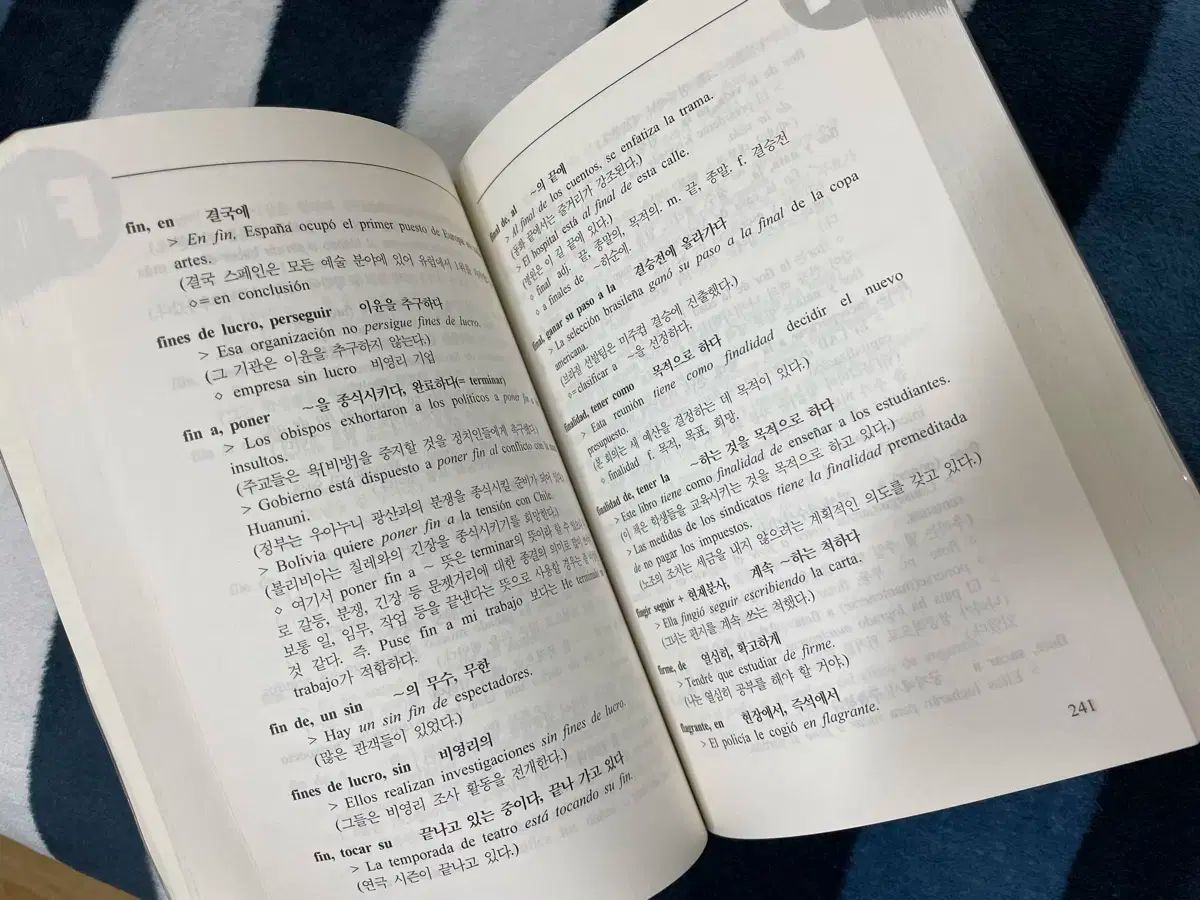 F
fin, en 결국에
> En fin, España ocupó el primer puesto de Europa
artes.
(결국 스페인은 모든 예술 분야에 있어 유럽에서 1위를
◇= en conclusión
fines de lucro, perseguir 이윤을 추구하다
> Esa organización no persigue fines de lucro.
(그 기관은 이윤을 추구하지 않는다.)
◇ empresa sin lucro 비영리 기업
fin a, poner ~을 종식시키다, 완료하다(= terminar)
> Los obispos exhortaron a los políticos a poner fin a
insultos.
(주교들은 욕[비방]을 중지할 것을 정치인들에게 촉구했다.)
> Gobierno está dispuesto a poner fin al conflicto con la
Huanuni.
(정부는 우아누니 광산과의 분쟁을 종식시킬 준비가 되어 있다.)
> Bolivia quiere poner fin a la tensión con Chile.
(볼리비아는 칠레와의 긴장을 종식시키기를 희망한다.)
◇ 여기서 poner fin a ~ 뜻은 terminar의 뜻이라 할 수 있으나
로 갈등, 분쟁, 긴장 등 문제거리에 대한 종결의 의미로 많이
보통 일, 임무, 작업 등을 끝낸다는 뜻으로 사용할 경우는
것 같다. 즉. Puse fin a mi trabajo 보다는 He terminado
trabajo가 적합하다.
fin de, un sin ~의 무수, 무한
> Hay un sin fin de espectadores.
(많은 관객들이 있었다.)
fines de lucro, sin 비영리의
> Ellos realizan investigaciones sin fines de lucro.
(그들은 비영리 조사 활동을 전개한다.)
fin, tocar su 끝나고 있는 중이다, 끝나 가고 있다
> La temporada de teatro está tocando su fin.
(연극 시즌이 끝나고 있다.)
final de, al ~의 끝에
> Al final de los cuentos, se enfatiza la trama.
(동화 끝에서는 줄거리가 강조된다.)
> El hospital está al final de esta calle.
(병원은 이 길 끝에 있다.)
◇ final adj. 끝, 종말의, 목적의. m. 끝, 종말. f. 결승전
◇ a finales de ~하순에.
final, ganar su paso a la 결승전에 올라가다
> La selección brasileña ganó su paso a la final de la copa
americana.
(브라질 선발팀은 미주컵 결승에 진출했다.)
◇= clasificar a ~을 선정하다.
finalidad, tener como 목적으로 하다
> Eata reunión tiene como finalidad decidir el nuevo
presupuesto.
(본 회의는 새 예산을 결정하는 데 목적이 있다.)
◇ finalidad f. 목적, 목표, 희망.
finalidad de, tener la ~하는 것을 목적으로 하다
> Este libro tiene como finalidad de enseñar a los estudiantes.
(이 책은 학생들을 교육시키는 것을 목적으로 하고 있다.)
> Las medidas de los sindicatos tiene la finalidad premeditada
de no pagar los impuestos.
(노조의 조치는 세금을 내지 않으려는 계획적인 의도를 갖고 있다.)
fingir seguir + 현재분사, 계속 ~하는 척하다
> Ella fingió seguir escribiendo la carta.
(그녀는 편지를 계속 쓰는 척했다.)
firme, de 열심히, 확고하게
> Tendré que estudiar de firme.
(나는 열심히 공부를 해야 할 거야.)
flagrante, en 현장에서, 즉석에서
> El policía le cogió en flagrante.
241